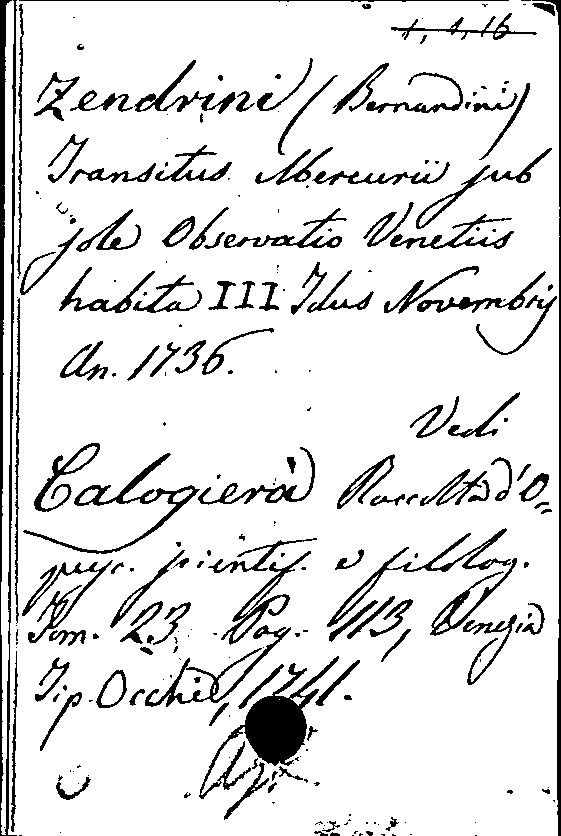 1, 1, 16
Zendrini (Bernardini)
Transitus Mercurii sub
sole Observatio Venetiis
habita III Idus Novembris
An. 1736.
Vedi
Calogierà Raccolta d'O=
pusc. scientif. e filolog.
Tom. 23 Pag. 113, Venezia
Tip Occhi, 1741.